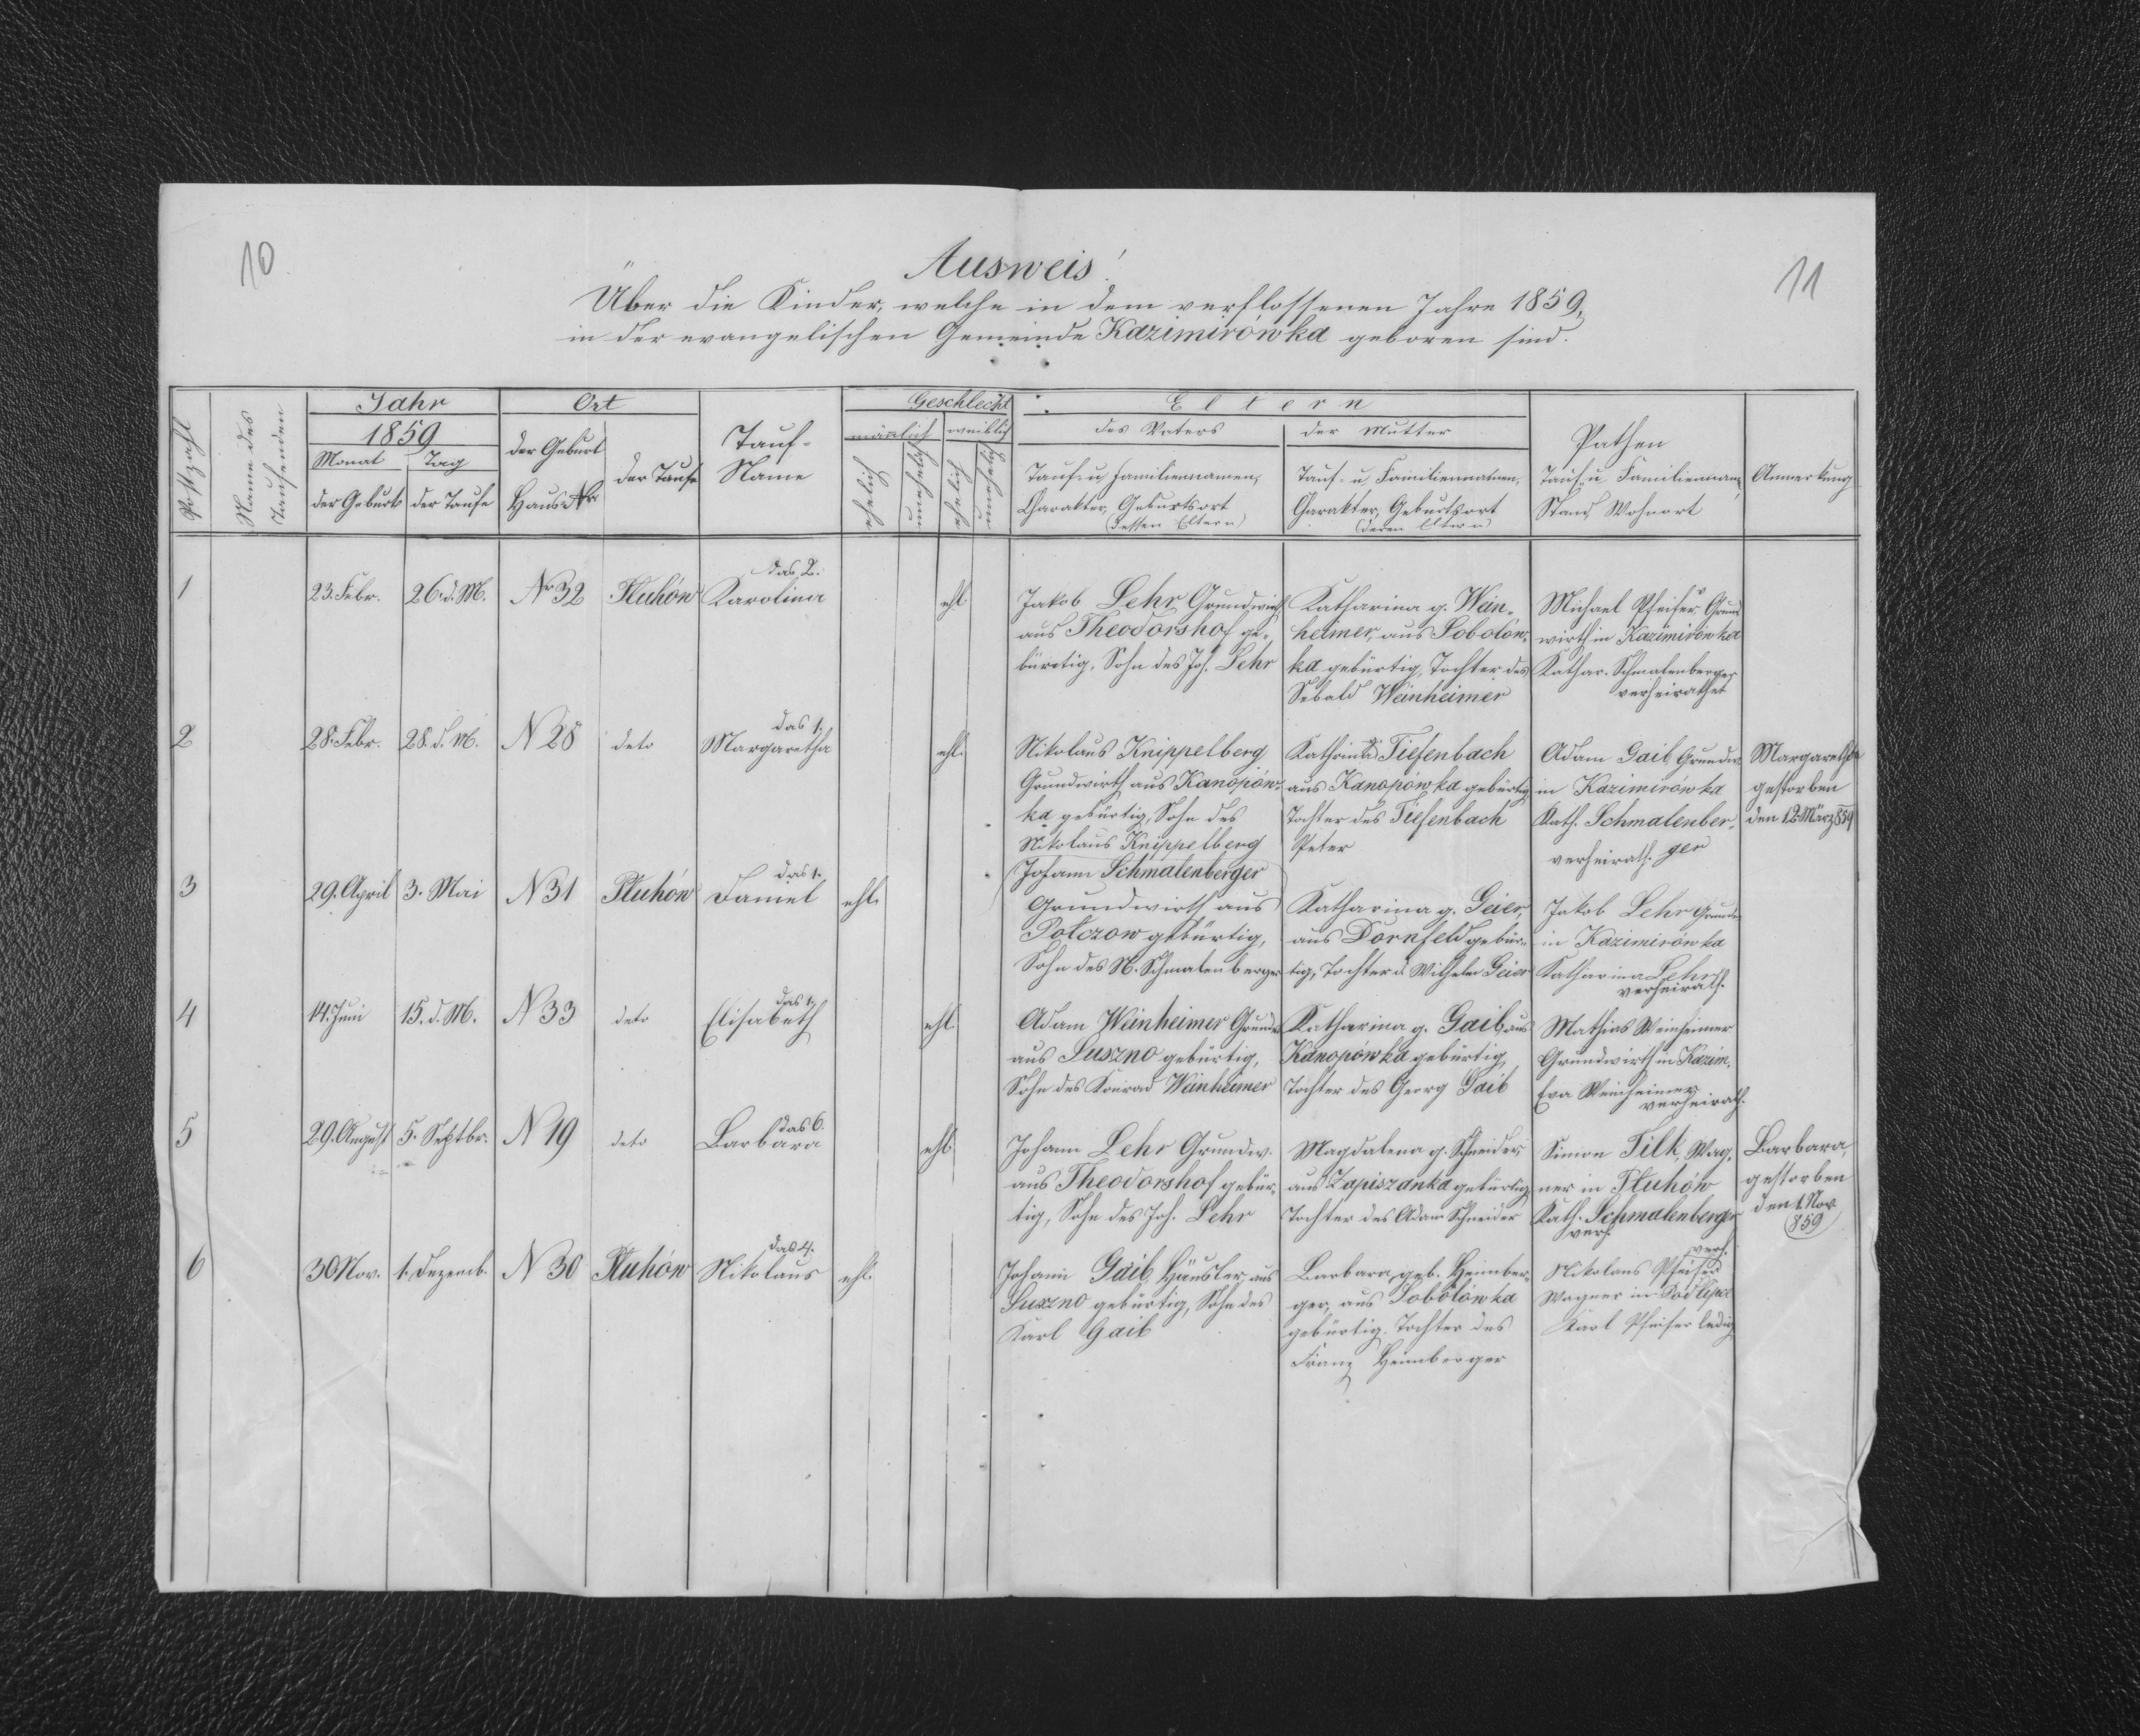 10
11
Ausweis!
Über die Kinder, welche in dem verflossenen Jahre 1859,
in der evangelischen Gemeinde Kazimirówka geboren sind.
Postzahl
Name des Taufenden
Jahr
1859
Monat Tag
der Geburt der Taufe
Ort
der Geburt
Haus-Nr.
der Taufe
Tauf-
Name
Geschlecht
mänlich weiblich
ehelich
unehelich
ehelich
unehelich
Eltern
des Vaters
Tauf- u Familiennamen,
Charakter, Geburtsort
(dessen Eltern)
der Mutter
Tauf- u Familiennamen,
Charakter, Geburtsort
(deren Eltern)
Pathen
Tauf- u Familienname,
Stand, Wohnort
Anmerkung
1
23. Febr.
26. d. M.
Nr 32
Pluhów
das 2.
Karolina
ehl
Jakob Lehr Grundwirth
aus Theodorshof ge-
bürtig, Sohn des Joh. Lehr
Katharina g. Wein-
heimer, aus Sobolów-
ka gebürtig, Tochter des
Sebald Weinheimer
Michael Pfeifer Grund
wirth in Kazimirówka
Kathar. Schmalenberger
verheirathet
2
28. Febr.
28. d. M.
N 28
deto
das 1.
Margaretha
ehl.
Nikolaus Knippelberg
Grundwirth aus Kanopów-
ka gebürtig, Sohn des
Nikolaus Knippelberg
Kathrina g. Tiefenbach
aus Kanopówka gebürtig
Tochter des Tiefenbach
Peter
Adam Gaib Grundw.
in Kazimirówka
Kath. Schmalenber-
verheirath. ger
Margaretha
gestorben
den 12 März 859
3
29. April
3. Mai
N 31
Pluhów
das 1.
Daniel
ehl.
Johann Schmalenberger
Grundwirth aus
Połczow gebürtig,
Sohn des N. Schmalenberger
Katharina g. Geier,
aus Dornfeld gebür-
tig, Tochter d. Wilhelm Geier
Jakob Lehr Grundw
in Kazimirówka
Katharina Lehr
verheirath.
4
14. Juni
15. d. M.
N 33
deto
das 1.
Elisabeth
ehl.
Adam Weinheimer Grundw
aus Suszno gebürtig,
Sohn des Konrad Weinheimer
Katharina g. Gaib aus
Kanopówka gebürtig,
Tochter des Georg Gaib
Mathias Weinheimer
Grundwirth in Kazim.
Eva Weinheimer
verheirath.
5
29. August
5. Septbr.
N 19
deto
das 6.
Barbara
ehl
Johann Lehr Grundw.
aus Theodorshof gebür-
tig, Sohn des Joh. Lehr
Magdalena g. Schneider,
aus Zapiszanka gebürtig
Tochter des Adam Schneider
Simon Filk, Wag-
ner in Pluhów
Kath. Schmalenberger
verh.
Barbara,
gestorben
den 1. Nov
859
6
30 Nov.
1. Dezemb.
N 30
Pluhów
das 4.
Nikolaus
ehl.
Johann Gaib, Häusler aus
Suszno gebürtig, Sohn des
Karl Gaib
Barbara, geb. Heimber-
ger, aus Sobolówka
gebürtig, Tochter des
Franz Heimberger
verh.
Nikolaus Pfeifer
Wagner in Podlipce
Karl Pfeifer ledig